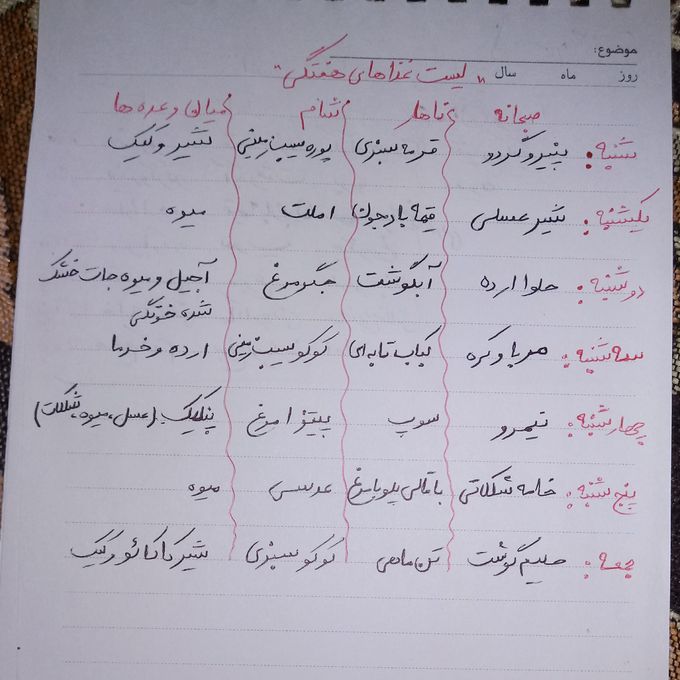 موضوع:
روز ماه سال
"لیست غذاهای هفتگی"
صبحانه ناهار شام میان وعده ها
شنبه: پنیر و گردو قرمه سبزی پوره سیب زمینی شیر و کیک
یکشنبه: شیر عسلی قیمه بادمجون املت میوه
دوشنبه: حلوا ارده آبگوشت جگر مرغ آجیل و میوه جات خشک
شده خونگی
سه شنبه: مربا و کره کباب تابه ای کوکو سیب زمینی ارده و خرما
چهارشنبه: نیمرو سوپ پیتزا مرغ پنکیک (عسل، میوه، شکلات)
پنج شنبه: خامه شکلاتی باقالی پلو با مرغ عدسی میوه
جمعه: حلیم گوشت تن ماهی کوکو سبزی شیر کاکائو و کیک